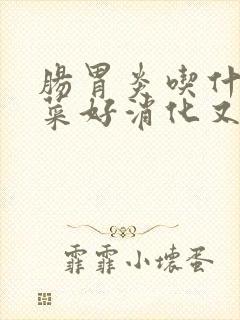 腸胃炎喫什
菜好消化又
霏霏小壞蛋